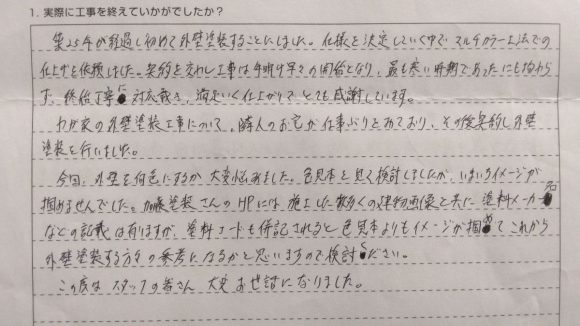 1. 実際に工事を終えていかがでしたか？
築25年が経過し初めて外壁塗装することにしました。仕様を決定していく中でマルチカラー工法での
仕上げを依頼しました。契約を交わし工事は年明け早々の開始となり、最も寒い時期であったにも拘わら
ず、終始丁寧に対応戴き、満足いく仕上がりでとても感謝しています。
わが家の外壁塗装工事について、隣人のお宅が仕事ぶりをみており、その後契約し外壁
塗装を行いました。
今回、外壁を何色にするか大変悩みました。色見本を見て検討しましたが、いまいちイメージが
掴めませんでした。加藤塗装さんのHPには、施工した数多くの建物画像と共に塗料メーカー名
などの記載は有りますが、塗料コードも併記されると色見本よりもイメージが掴めて これから
外壁塗装する方々の参考になるかと思いますので検討ください。
この度はスタッフの皆さん 大変お世話になりました。